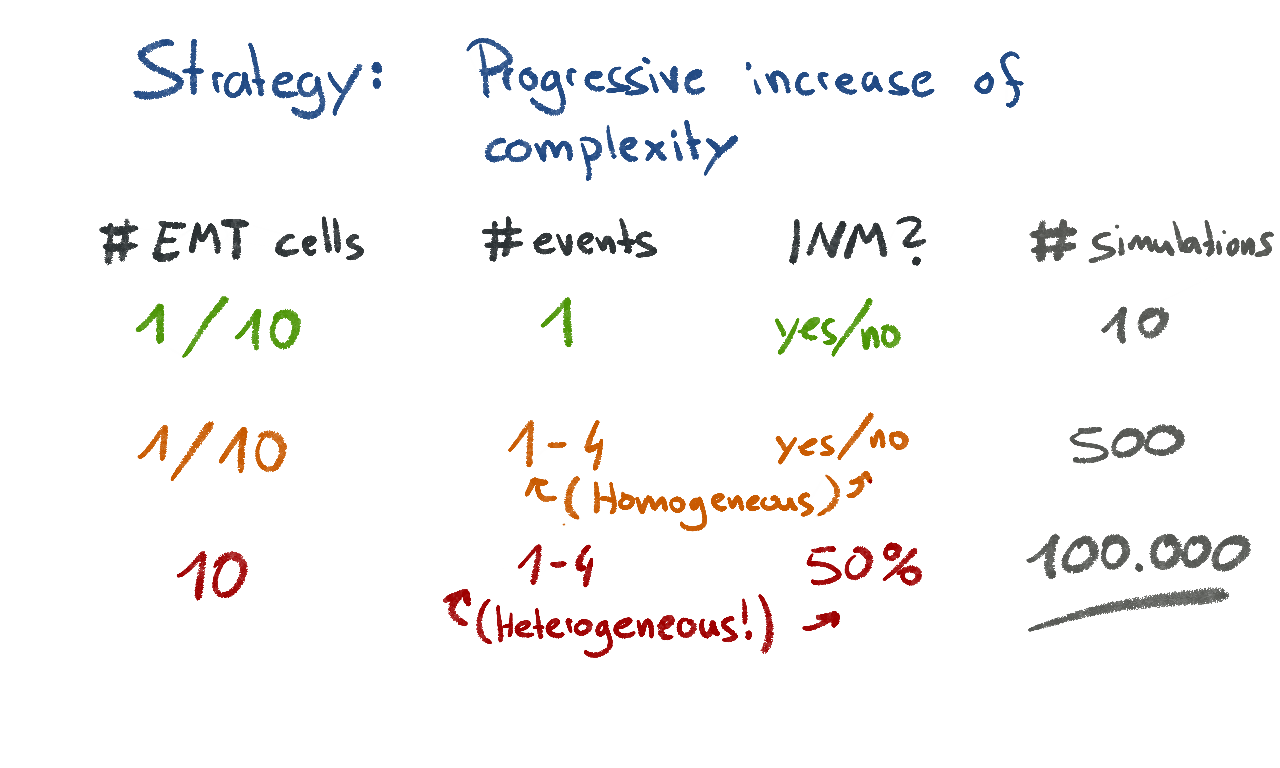 Strategy: Progressive increase of
complexity
# EMT cells # events INM? # simulations
1/10 1 yes/no 10
1/10 1-4 yes/no 500
(Homogeneous)
10 1-4 50% 100.000
(Heterogeneous!)